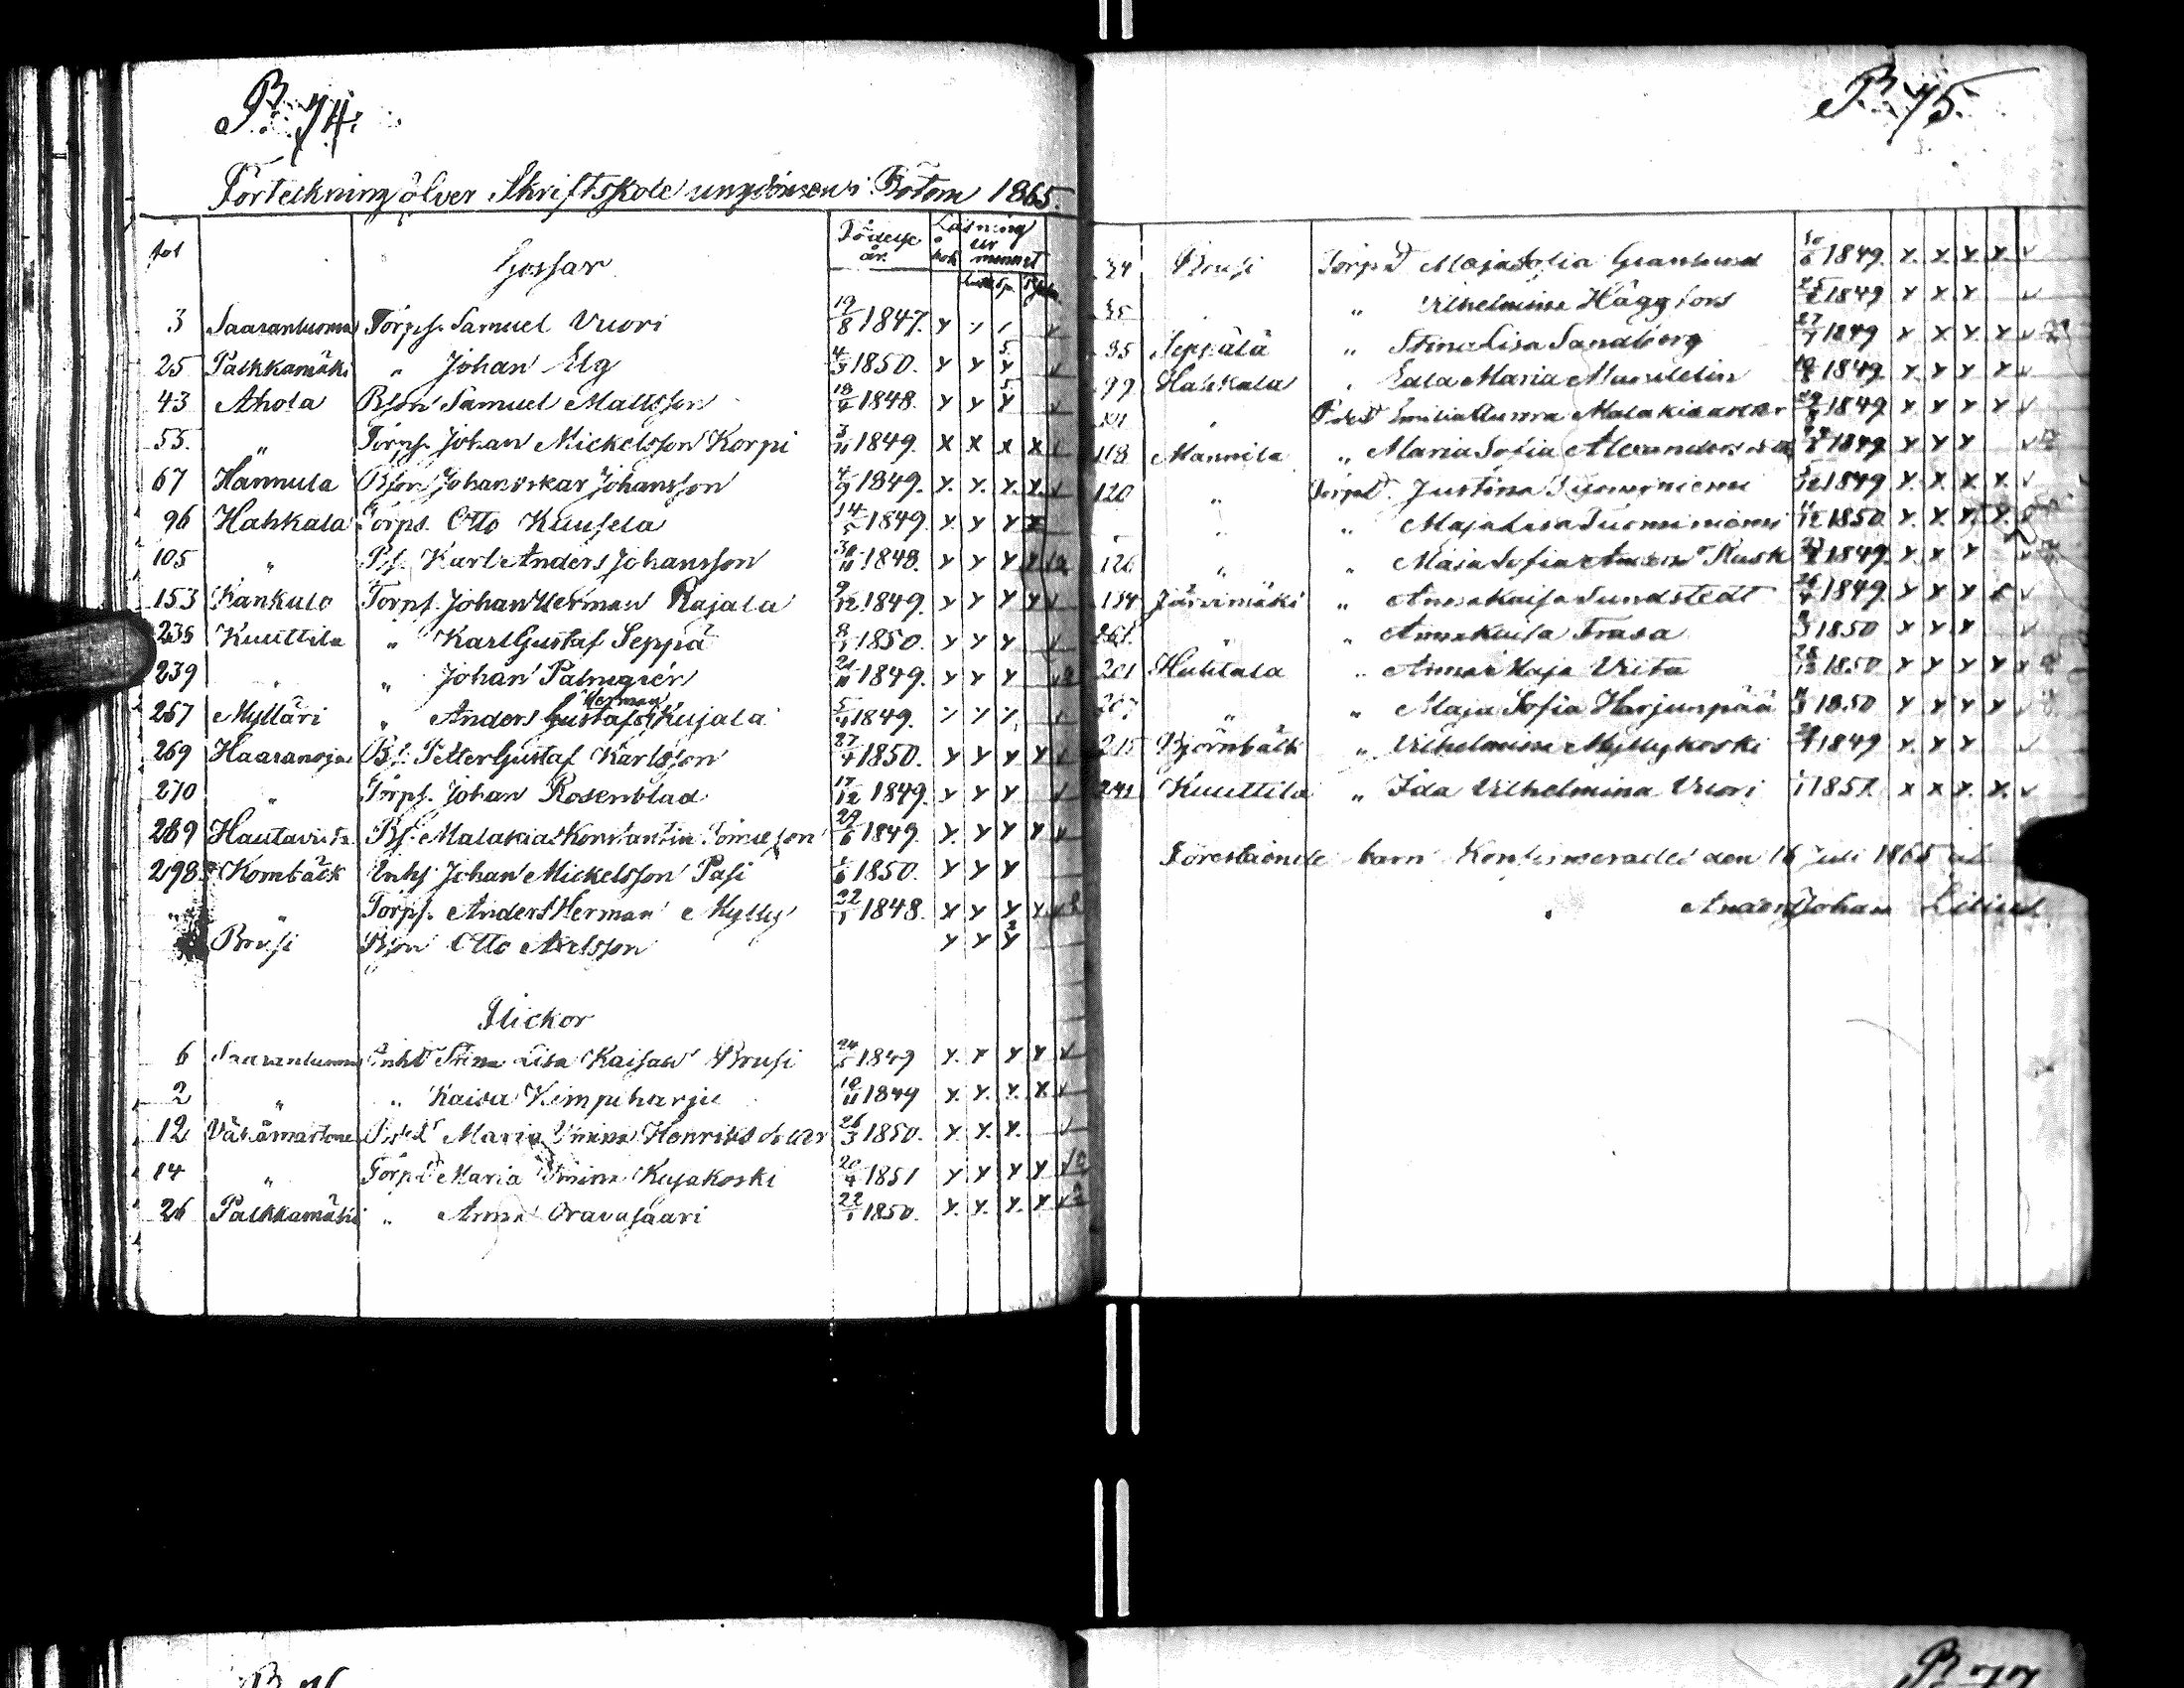 P. 74.
Förteckning öfver Skriftskole ungdomen i Bötom 1865.
fol Födelse år. Läsning i bok ur minnet
Gossar
3 Saaranluoma Torps. Samuel Vuori 19/8 1847. x
25 Palkkamäki " Johan Elg 4/3 1850. x x x 5
43 Ahola Bson Samuel Mattsson 18/4 1848. x x x 5
55. " Torps. Johan Mickelsson Korpi 3/11 1849. x x x x
67 Hannula Bson Johan Oskar Johansson 4/9 1849. x. x. x. x.
96 Hahkala Torps. Otto Kuusela 14/5 1849. x x x x
105 " Bs. Karl Anders Johansson 30/11 1848. x x x x
153 Kankalo Torps. Johan Herman Rajala 9/12 1849. x x x x
235 Kuuttila " Karl Gustaf Seppä 8/1 1850. x x x
239 " " Johan Palmgrén 21/11 1849. x x x
Herman
257 Mylläri " Anders Gustafs Kujala 5/4 1849. x x x
269 Haaranoja Bs. Petter Gustaf Karlsson 27/4 1850. x x x x
270 " Torps. Johan Rosenblad 17/12 1849. x x x
289 Hautaviita Bs. Malakias Konstantin 29/6 1849. x. x x x
298 Kornbäck Inhs Johan Mickelsson Pasi 1/6 1850. x x x
" " Torps. Anders Herman Mylly 22/1 1848. x x x x
Brusi Bson Otto Axelsson x x x 2
Flickor
6 Saaranluoma Inhd Stina Lisa Kaisasdr Brusi 24/5 1849 x. x x x
2 " " Kaisa Kimpiharju 19/11 1849 x. x. x. x
12 Vähämartone Maria Henriksdotter 26/3 1850. x. x. x.
14 " Torpd Maria Kujakoski 20/4 1851 x x x x
26 Palkkamäki " Anna Oravasaari 22/1 1850. x. x. x. x
P. 75.
34 Brusi Torpd Maja Sofia Granlund 10/6 1849. x. x. x. x.
35 " Vilhelmina Häggfors 1849 x x x
95 Seppälä " Stina Lisa Sandberg 27/7 1849 x x x. x
99 Hahkala " Maria Mandelin 1849 x x x x
" Emilia Malakiasdotter 1849 x x x x
118 Mannila " Maria Sofia Alexandersdotter 1849 x x x
120 " Torpd. Justina Tuominiemi 1849 x. x. x. x
" " Maja Lisa Tuominiemi 11/12 1850. x. x. x. x.
126 " " Maja Sofia Rask 1849. x. x x
134 Järvimäki " Anna Kaisa Sundstedt 26/4 1849. x x x x
" " Anna Kaisa Trasa 1850 x x x
201 Huhtala " Anna Kaja Viita 1850 x x x x
" " Maja Sofia Harjunpää 1850 x x x x
215 Björnbäck " Vilhelmina Myllykoski 1849 x. x x
241 Kuuttila " Ida Vilhelmina Vuori 1851. x x x. x.
Förestående barn Konfirmerades den 16 Juli 1865 af
Anders Johan